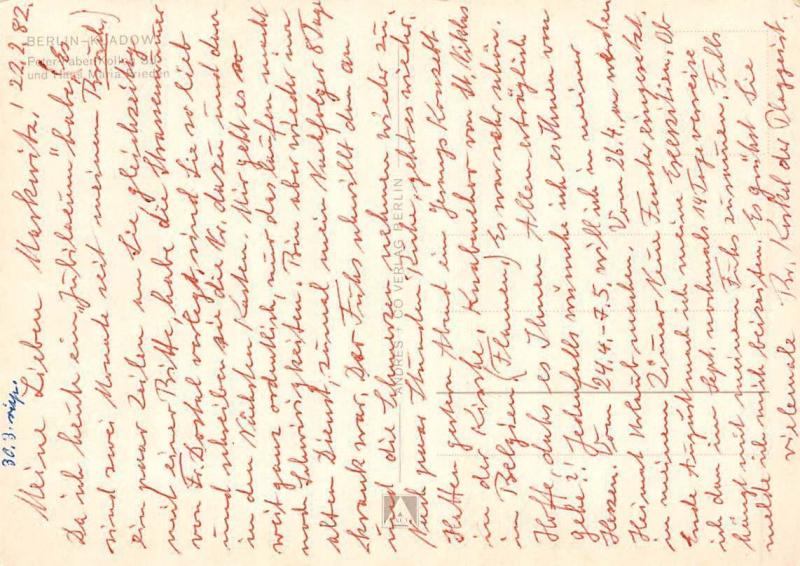 BERLIN-KLADOW
Peter-Faber-Kolleg
und Hans Maria Frieden
ANDRES + CO VERLAG BERLIN
30.3.
22.2.82.
Meine Lieben Markwitz!
Da ich heute ein „Jubiläum" habe (es
sind zwei Monate seit meinem Bruch)
ein paar Zeilen an Sie, gleichzeitig
mit einer Bitte, habe die Strassennummer
von Fr. Dostal verlegt, sind Sie so lieb
und schreiben sie die Nr. dazu und dann
in den nächsten Kasten. Mir geht es so
weit ganz ordentlich, nur das Laufen macht
noch Schwierigkeiten. Bin aber wieder im
alten Dienst, zumal mein Nachfolger 8 Tage
krank war. Der Fuhs schwillt dann an
und die Schmerzen nehmen wieder zu.
Nach paar Stunden Ruhe, geht es wieder.
Hatten gestern Abend ein Konzert
in der Kirche, Knabenchor von St. Niklas
in Belgien (Flamen) Es war sehr schön.
Hoffe dahs es Ihnen Allen erträglich
gehe?! Jedenfalls wünsche ich es Ihnen von
Herzen. Vom 24.4.-7.5. will ich in meiner
Heimat Urlaub machen. Vom 26.4. an werden
in meinem Zimmer neue Fenster eingesetzt.
Ende August mach ich meine Exerzitien. Ob
ich dann im Sept. nochmals 14 Tage verreise
hängt mit meinem Fuhs zusammen. Falls
melde ich mich beizeiten. Es grühst Sie
vielemale Br.